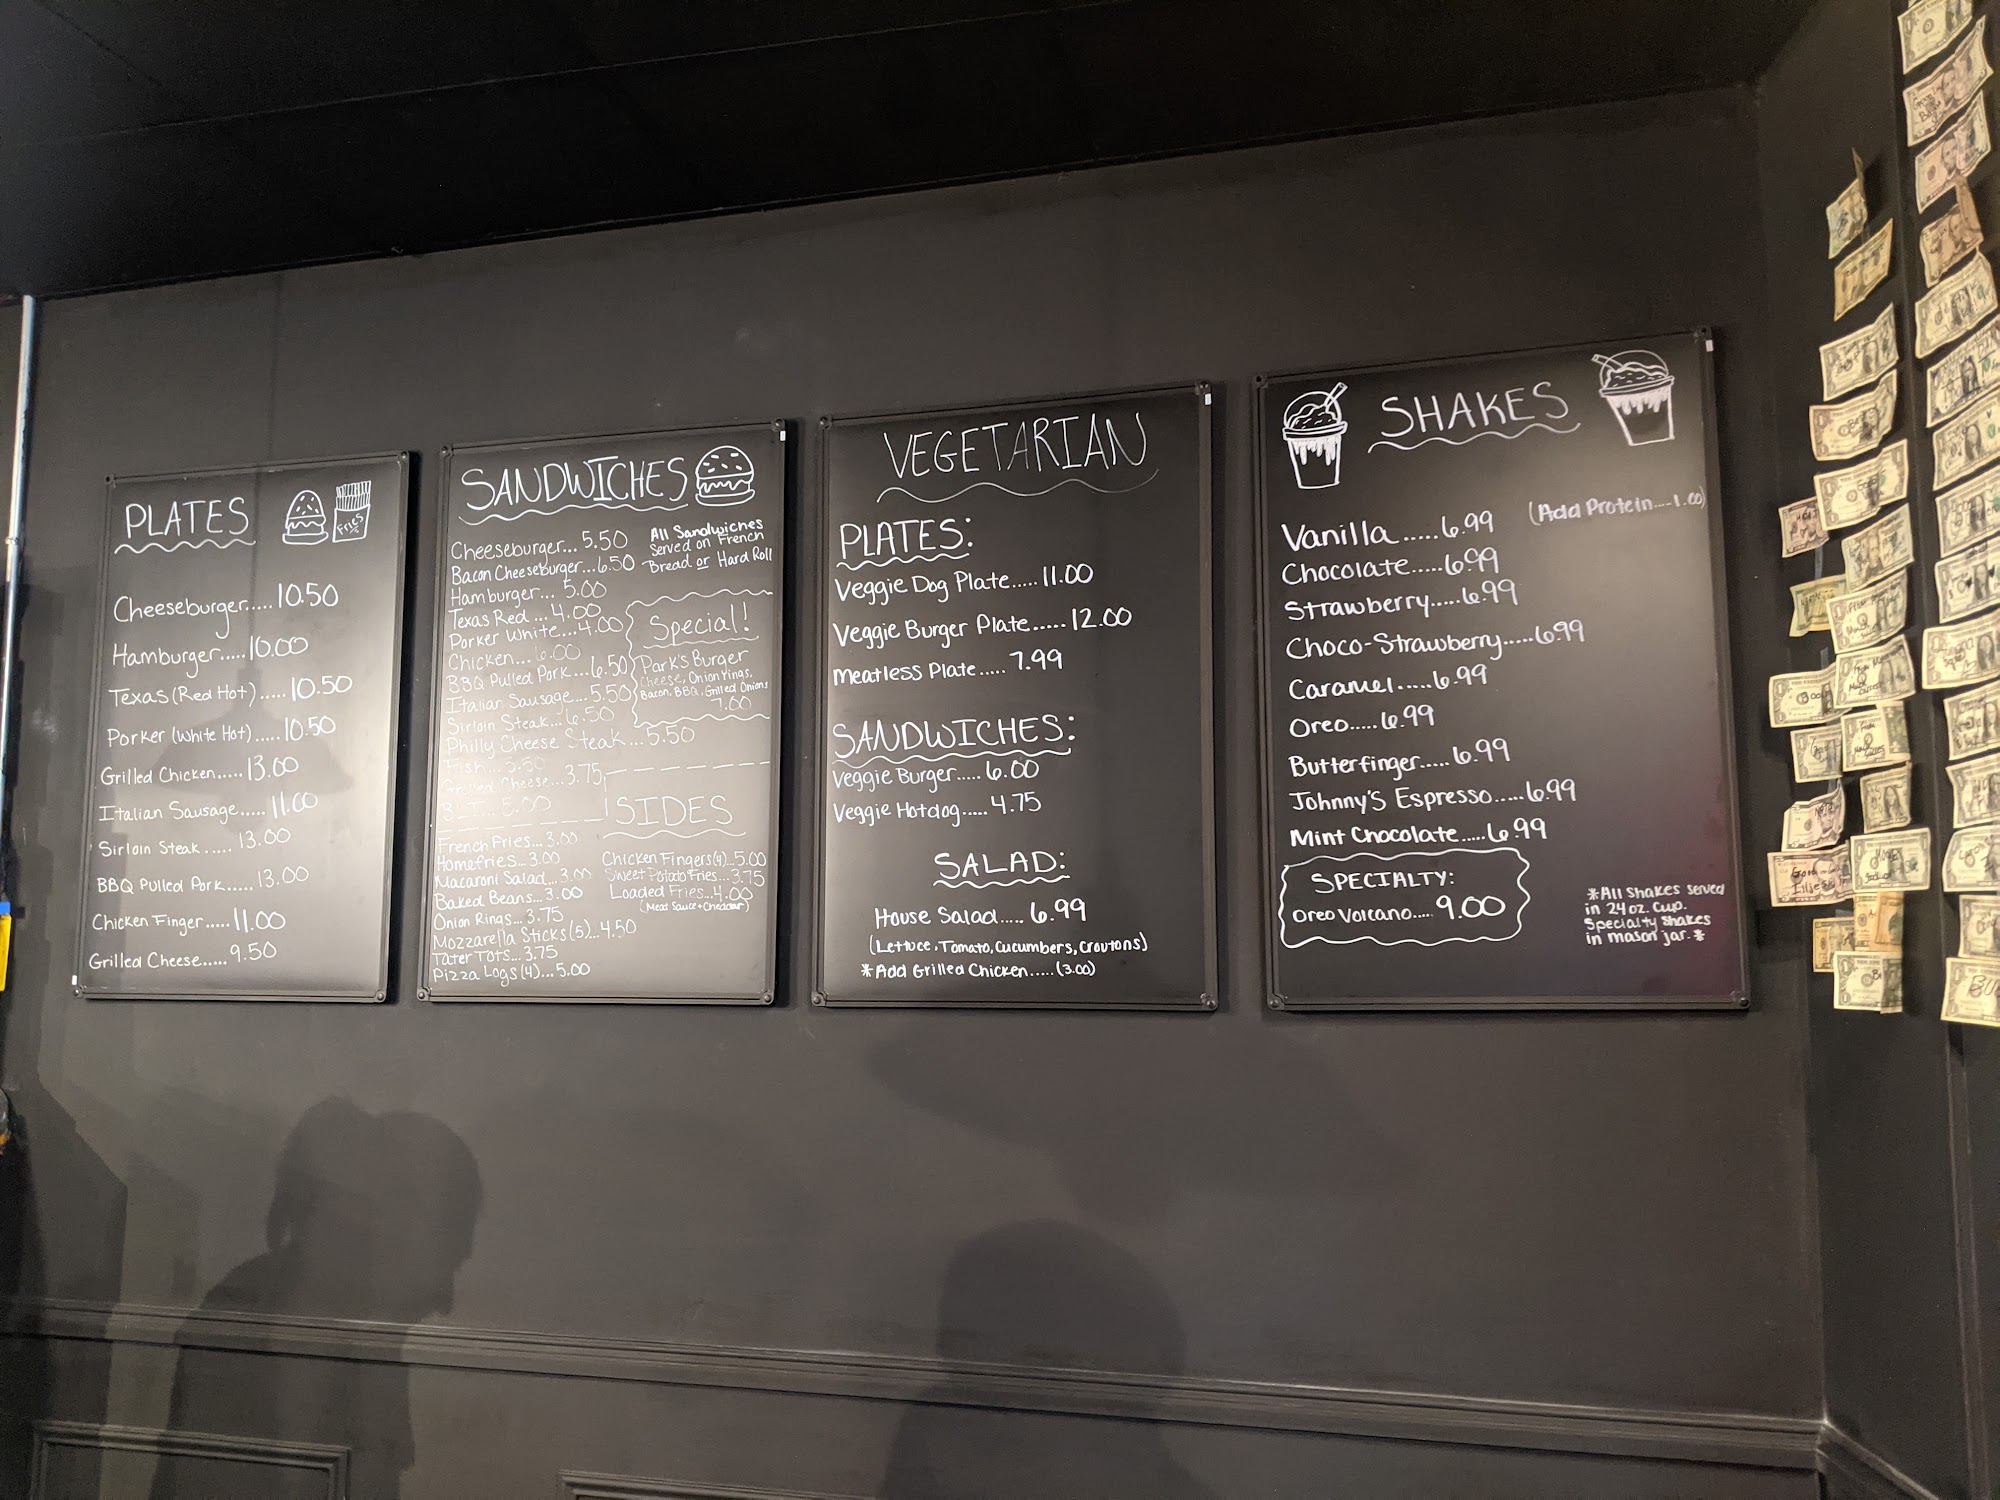 PLATES
Fries
Cheeseburger.....10.50
Hamburger.....10.00
Texas (Red Hot).....10.50
Porker (White Hot).....10.50
Grilled Chicken.....13.00
Italian Sausage.....11.00
Sirloin Steak.....13.00
BBQ Pulled Pork.....13.00
Chicken Finger....11.00
Grilled Cheese.....9.50
SANDWICHES
All Sandwiches
Served on French
Bread or Hard Roll
Cheeseburger...5.50
Bacon Cheeseburger...6.50
Hamburger...5.00
Texas Red...4.00
Porker White...4.00
Chicken...6.00
BBQ Pulled Pork...6.50
Italian Sausage...5.50
Sirloin Steak...6.50
Philly Cheese Steak...5.50
Fish...5.50
Grilled Cheese...3.75
BLT...5.00
Special!
Park's Burger
Cheese, Onion rings,
Bacon, BBQ, Grilled Onions
7.00
SIDES
French Fries...3.00
Homefries...3.00
Macaroni Salad...3.00
Baked Beans...3.00
Onion Rings...3.75
Mozzarella Sticks (5)...4.50
Tater Tots...3.75
Pizza Logs (4)...5.00
Chicken Fingers(4)...5.00
Sweet Potato Fries...3.75
Loaded Fries...4.00
(Meat Sauce + Cheddar)
VEGETARIAN
PLATES:
Veggie Dog Plate.....11.00
Veggie Burger Plate.....12.00
Meatless Plate.....7.99
SANDWICHES:
Veggie Burger.....6.00
Veggie Hotdog.....4.75
SALAD:
House Salad.....6.99
(Lettuce, Tomato, Cucumbers, Croutons)
*Add Grilled Chicken.....(3.00)
SHAKES
(Add Protein....1.00)
Vanilla.....6.99
Chocolate.....6.99
Strawberry.....6.99
Choco-Strawberry.....6.99
Caramel.....6.99
Oreo.....6.99
Butterfinger.....6.99
Johnny's Espresso.....6.99
Mint Chocolate.....6.99
SPECIALTY:
Oreo Volcano.....9.00
*All Shakes served
in 24 oz. cup.
Specialty Shakes
in mason jar.*